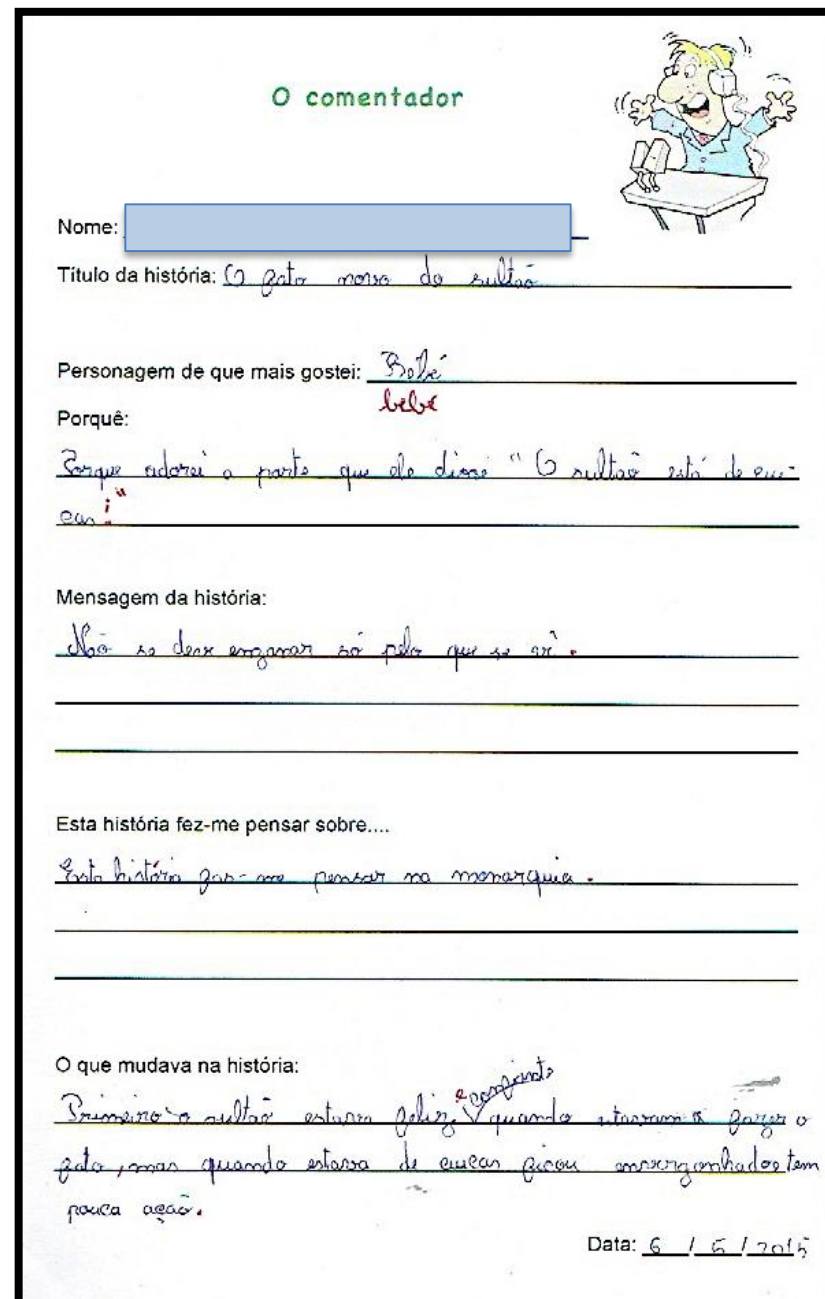 O comentador
Nome:
Título da história: O fato novo do sultão
Personagem de que mais gostei: Bebé
bebé
Porquê:
Porque adorei a parte que ele disse " O sultão está de cue-
cas!"
Mensagem da história:
Não se deve enganar só pelo que se vê.
Esta história fez-me pensar sobre....
Esta história faz-me pensar na monarquia.
O que mudava na história:
e confiante
Primeiro o sultão estava feliz, quando estavam a fazer o
fato, mas quando estava de cuecas ficou envergonhado e tem
pouca ação.
Data: 6 / 5 / 2015